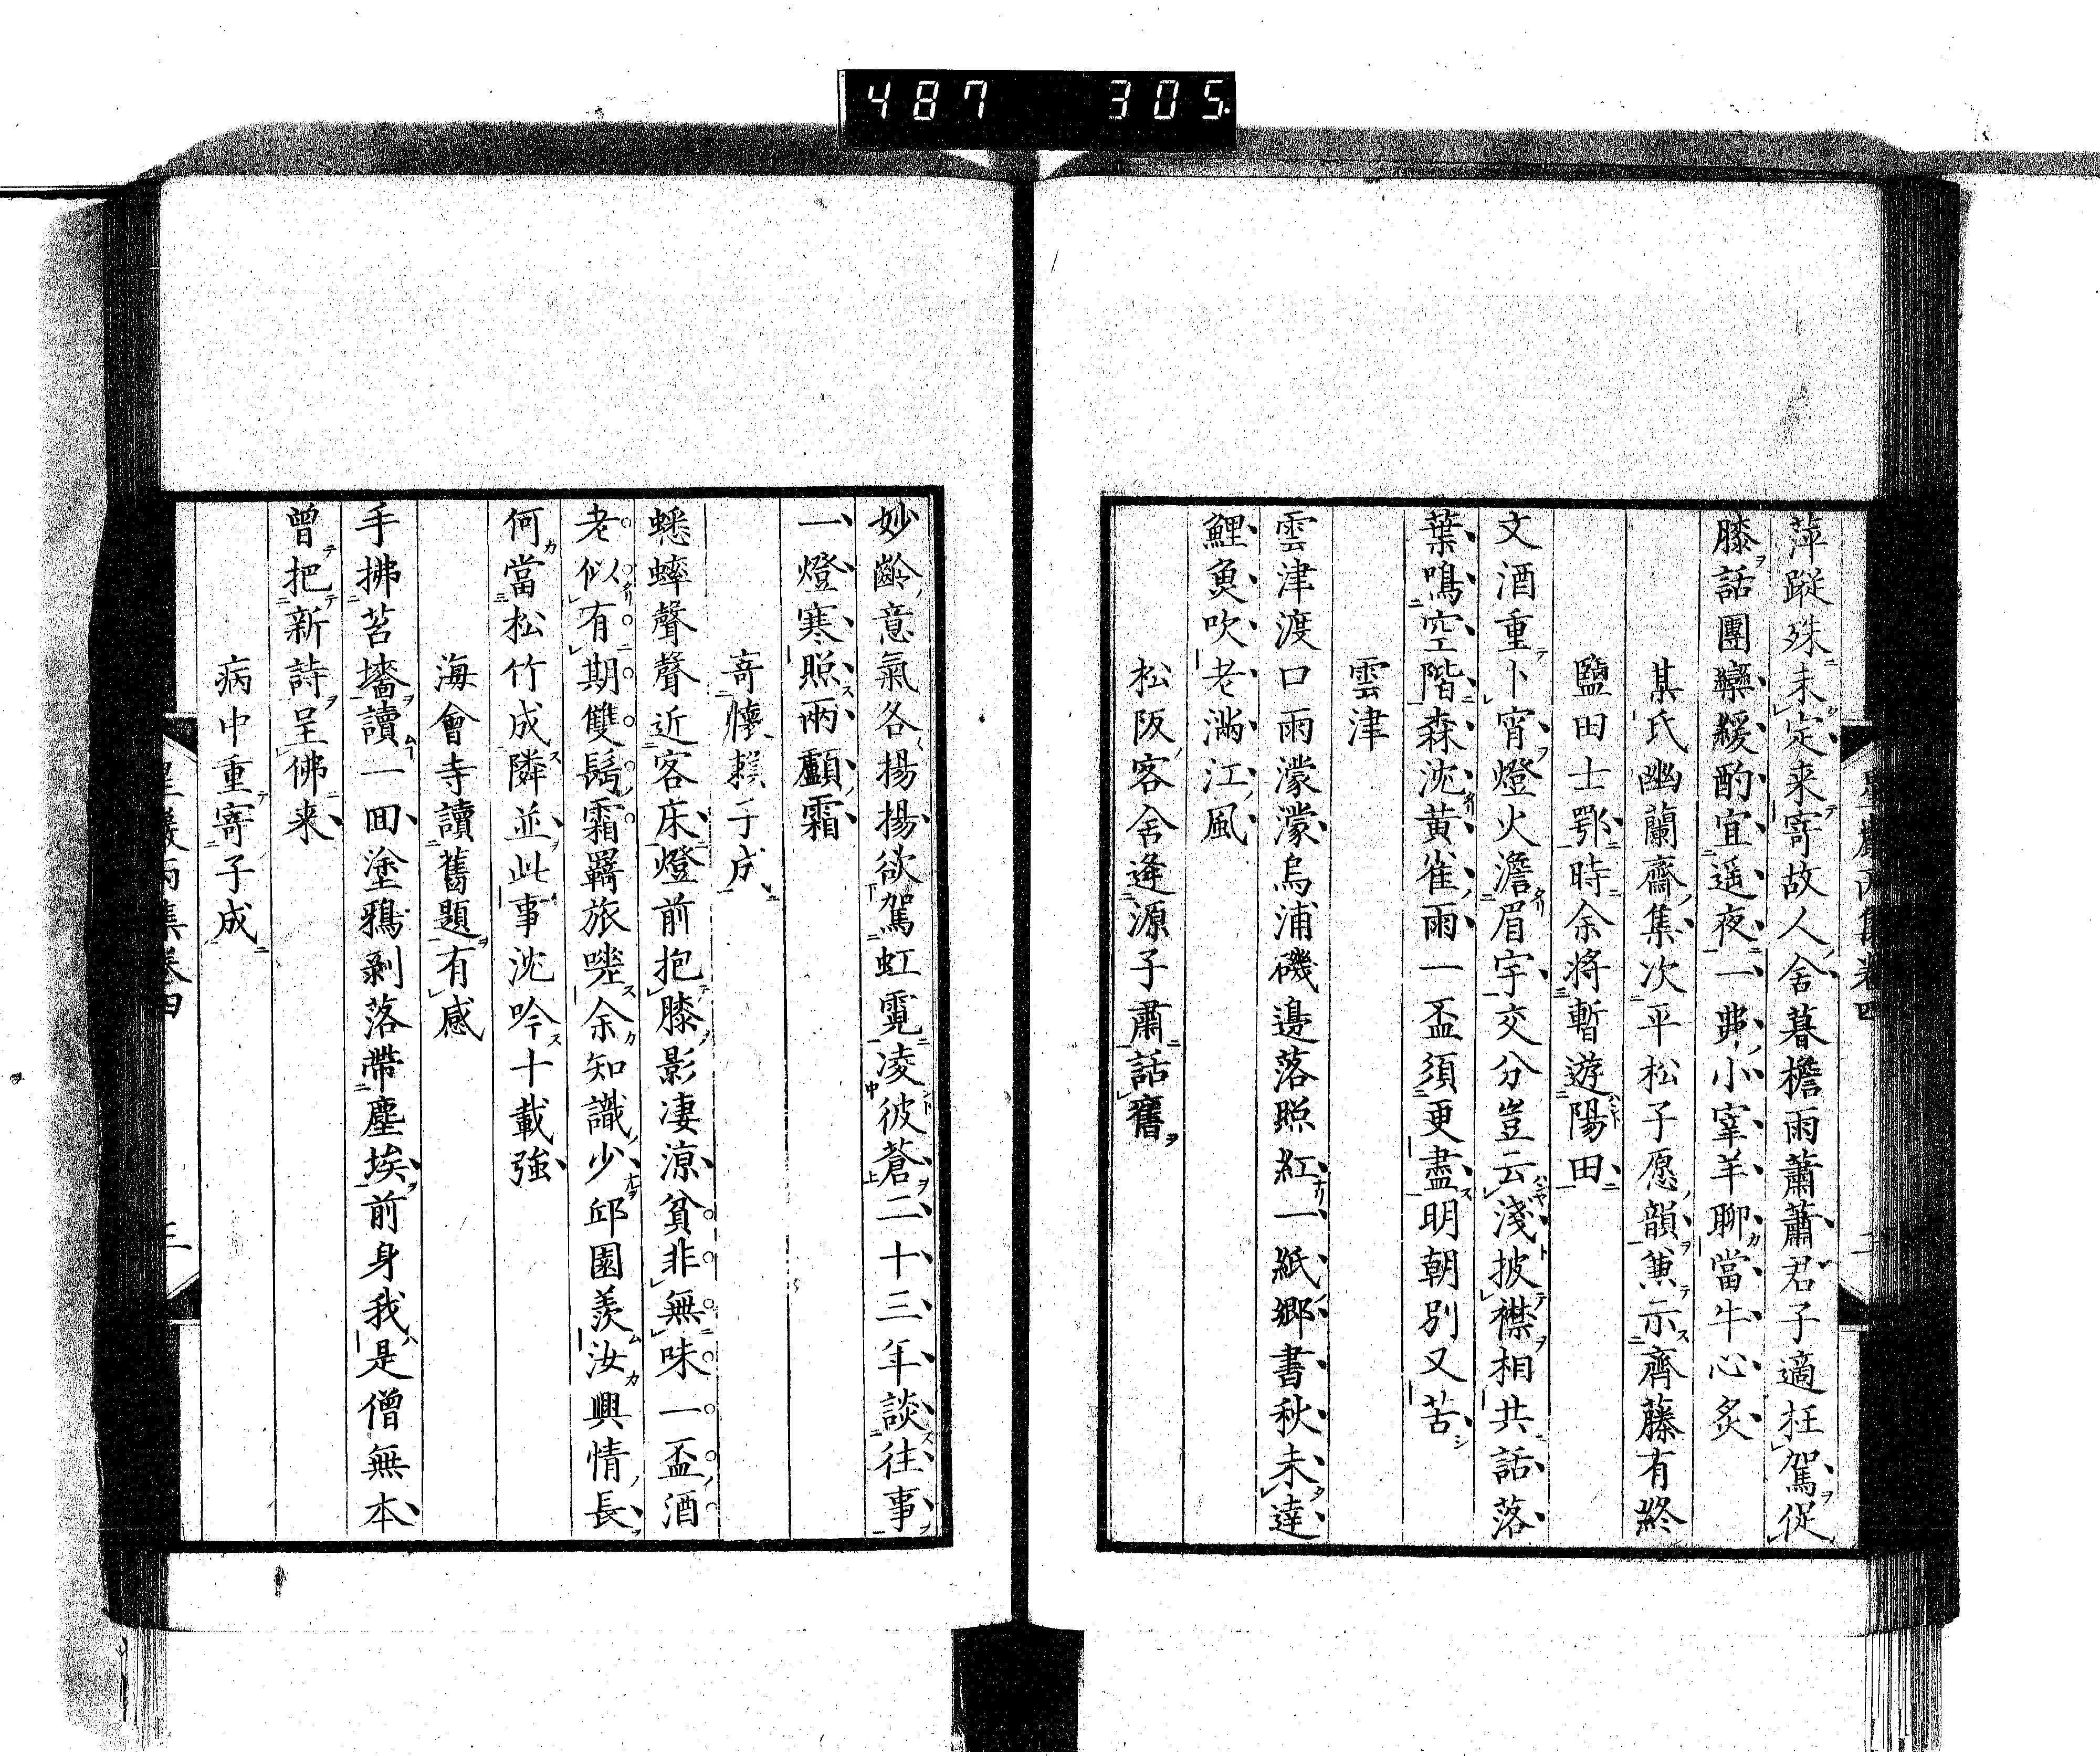 487 305.
萍蹤殊未定来寄故人舍暮檐雨蕭蕭君子適枉駕促
膝話團欒緩酌宜遥夜一臠小宰羊聊當牛心炙
某氏幽蘭齋集次平松子愿韻兼示齊藤有終
鹽田士鄂時余将暫遊陽田
文酒重卜宵燈火澹眉宇交分豈云淺披襟相共話落
葉鳴空階森沈黄雀雨一盃須更盡明朝別又苦
雲津
雲津渡口雨濛濛烏浦磯邊落照紅一紙郷書秋未達
鯉魚吹老滿江風
松阪客舍逢源子肅話舊
妙齡意氣各揚揚欲駕虹霓凌彼蒼二十三年談往事
一燈寒照兩顱霜
寄懷賴子成
蟋蟀聲聲近客床燈前抱膝影凄凉貧非無味一盃酒
老似有期雙鬂霜羇旅嗟余知識少邱園羨汝興情長
何當松竹成隣並此事沈吟十載強
海會寺讀舊題有感
手拂苔墻讀一回塗鴉剥落帶塵埃前身我是僧無本
曾把新詩呈佛来
病中重寄子成
星巖丙集卷四 三